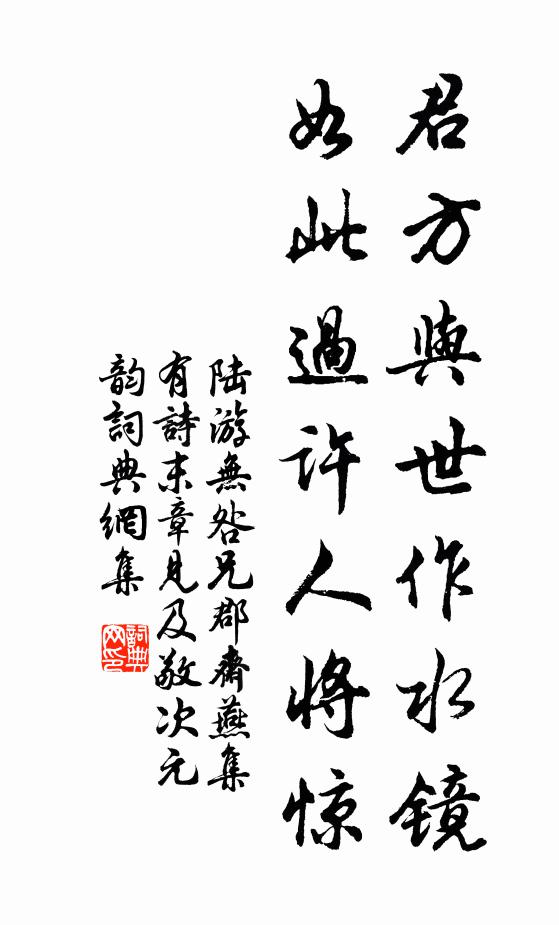 君方與世作水鏡
如此過許人將惊
陆游無咎兄郡齋燕集
有詩末章見及敬次元
韵詞典網集
詞典網印